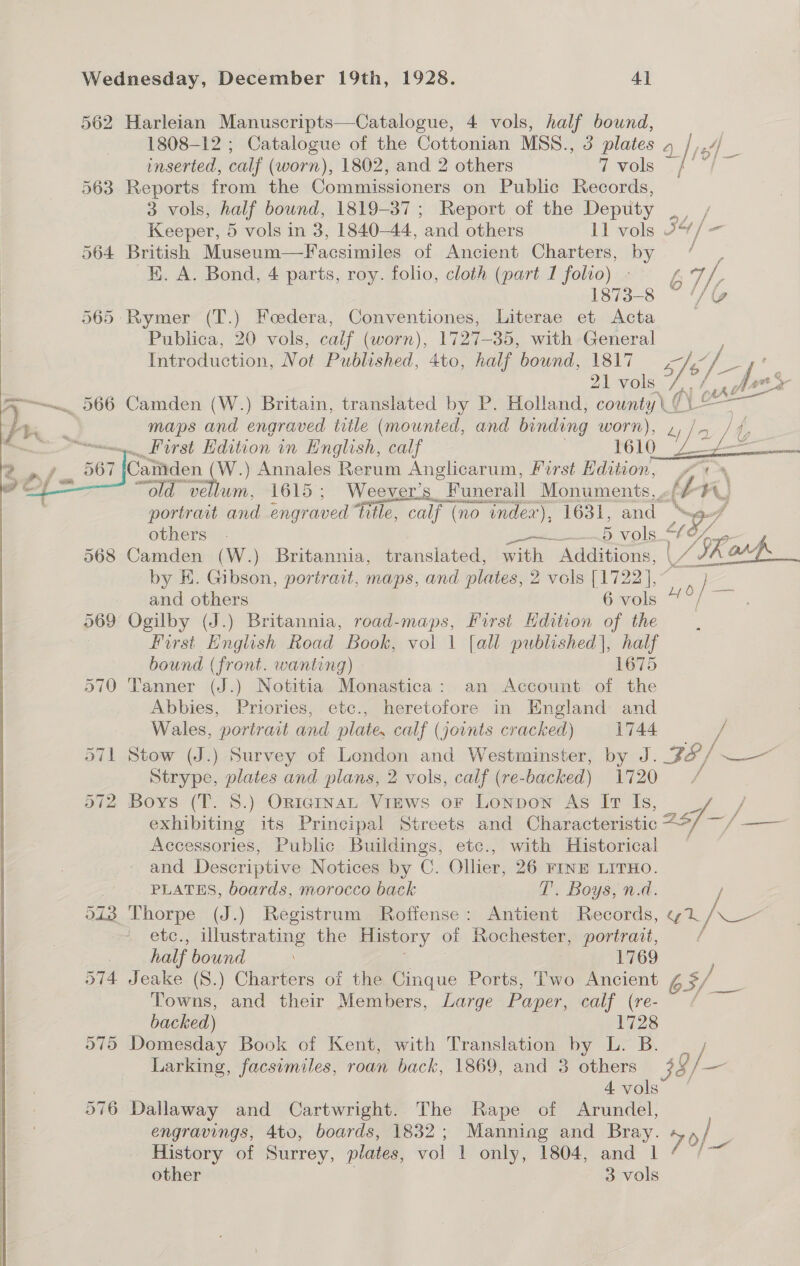 Wednesday, December 19th, 1928. 41
562 Harleian Manuscripts—Catalogue, 4 vols, half bound,
1808–12; Catalogue of the Cottonian MSS., 3 plates
inserted, calf (worn), 1802, and 2 others 7 vols
563 Reports from the Commissioners on Public Records,
3 vols, half bound, 1819–37; Report of the Deputy
Keeper, 5 vols in 3, 1840–44, and others 11 vols
564 British Museum—Facsimiles of Ancient Charters, by
E. A. Bond, 4 parts, roy. folio, cloth (part 1 folio)
1873–8
565 Rymer (T.) Fœdera, Conventiones, Literae et Acta
Publica, 20 vols, calf (worn), 1727–35, with General
Introduction, Not Published, 4to, half bound, 1817
21 vols
566 Camden (W.) Britain, translated by P. Holland, county
maps and engraved title (mounted, and binding worn),
First Edition in English, calf 1610
567 Camden (W.) Annales Rerum Anglicarum, First Edition,
old vellum, 1615; Weever's Funerall Monuments,
portrait and engraved title, calf (no index), 1631, and
others 5 vols
568 Camden (W.) Britannia, translated, with Additions,
by E. Gibson, portrait, maps, and plates, 2 vols [1722],
and others 6 vols 40/–
569 Ogilby (J.) Britannia, road-maps, First Edition of the
First English Road Book, vol 1 [all published], half
bound (front. wanting) 1675
570 Tanner (J.) Notitia Monastica: an Account of the
Abbies, Priories, etc., heretofore in England and
Wales, portrait and plate, calf (joints cracked) 1744
571 Stow (J.) Survey of London and Westminster, by J.
Strype, plates and plans, 2 vols, calf (re-backed) 1720
572 Boys (T. S.) Original Views of London As It Is,
exhibiting its Principal Streets and Characteristic
Accessories, Public Buildings, etc., with Historical
and Descriptive Notices by C. Ollier, 26 FINE LITHO.
PLATES, boards, morocco back T. Boys, n.d.
573 Thorpe (J.) Registrum Roffense: Antient Records,
etc., illustrating the History of Rochester, portrait,
half bound 1769
574 Jeake (S.) Charters of the Cinque Ports, Two Ancient 65/–
Towns, and their Members, Large Paper, calf (re-
backed) 1728
575 Domesday Book of Kent, with Translation by L. B.
Larking, facsimiles, roan back, 1869, and 3 others
4 vols
576 Dallaway and Cartwright. The Rape of Arundel,
engravings, 4to, boards, 1832; Manning and Bray.
History of Surrey, plates, vol 1 only, 1804, and 1
other 3 vols